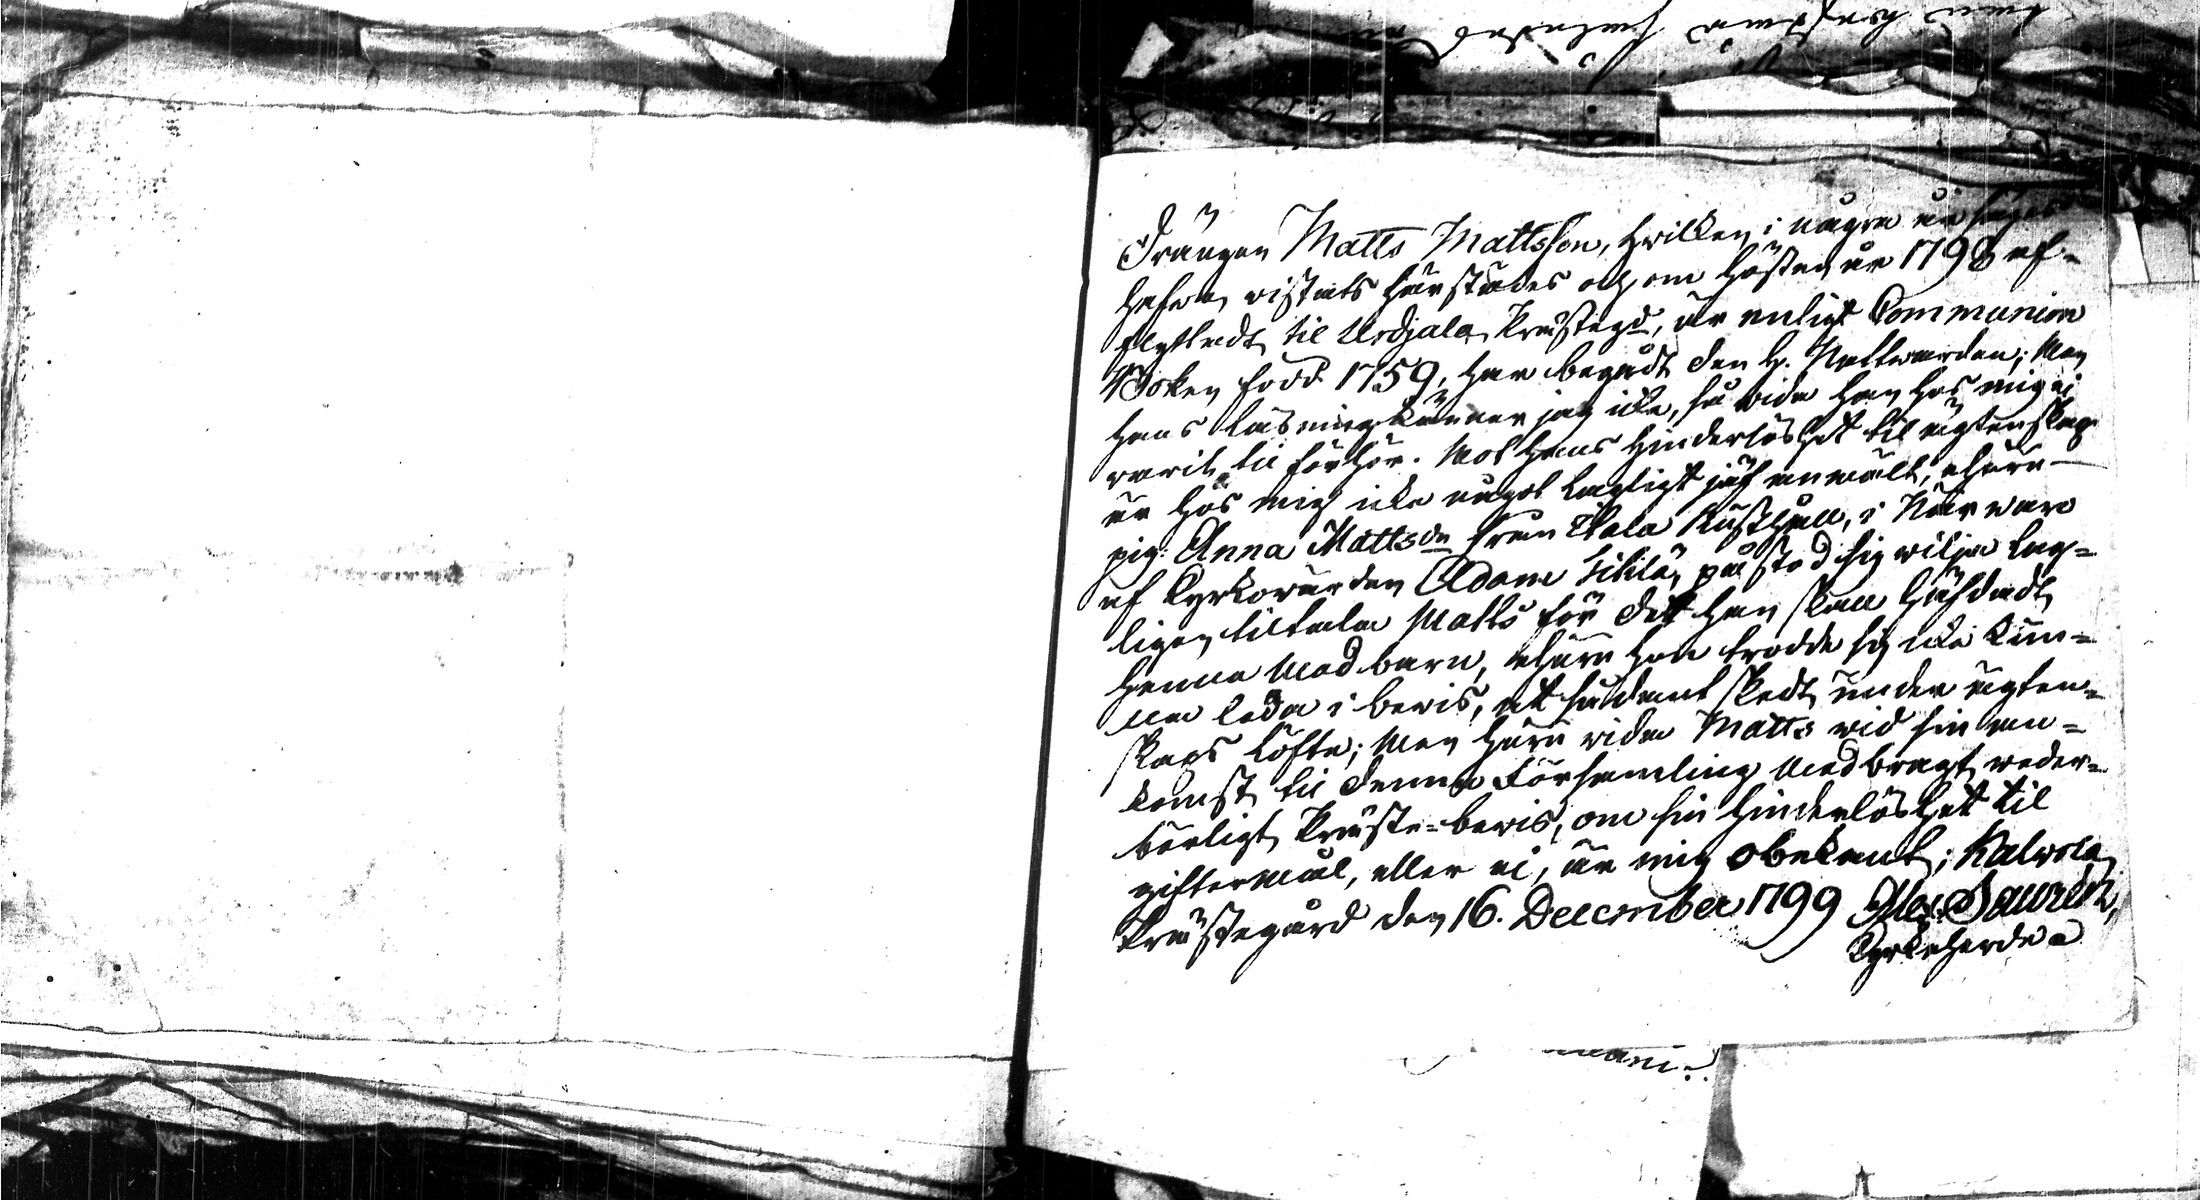 Drängen Matts Mattsson, hwilken i några år
hafwa wistats härstädes och om hösten år 1798 af-
flyttadt til Urdjala Prästegd, är enligt Communion
Boken född 1759, har begådt den H. Nattwarden; Men
hans läsning känner jag icke, så wida han hos mig ej
warit til förhör. Mot hans hinderlöshet til ägtenskap
är hos mig icke något lagligt jäf anmält, ehuru
pig. Anna Mattsdr från Ikala Rusthåll, i När waro
af Kyrkowärden Adam påstod sig wilja lag-
ligen tiltala Matts för det han skall häfdadt
henne med barn, ehuru hon trodde sig icke kun-
na leda i bewis, at sådant skedt under ägten-
skaps löfte; Men huru wida Matts wid sin an-
komst til denna Församling medbragt weder-
börligt Präste-bewis, om sin hinderlöshet til
giftermål, eller ei, är mig obekant; Kalvola
Prästegård den 16. December 1799 Alex. Saurén,
Kyrkoherde